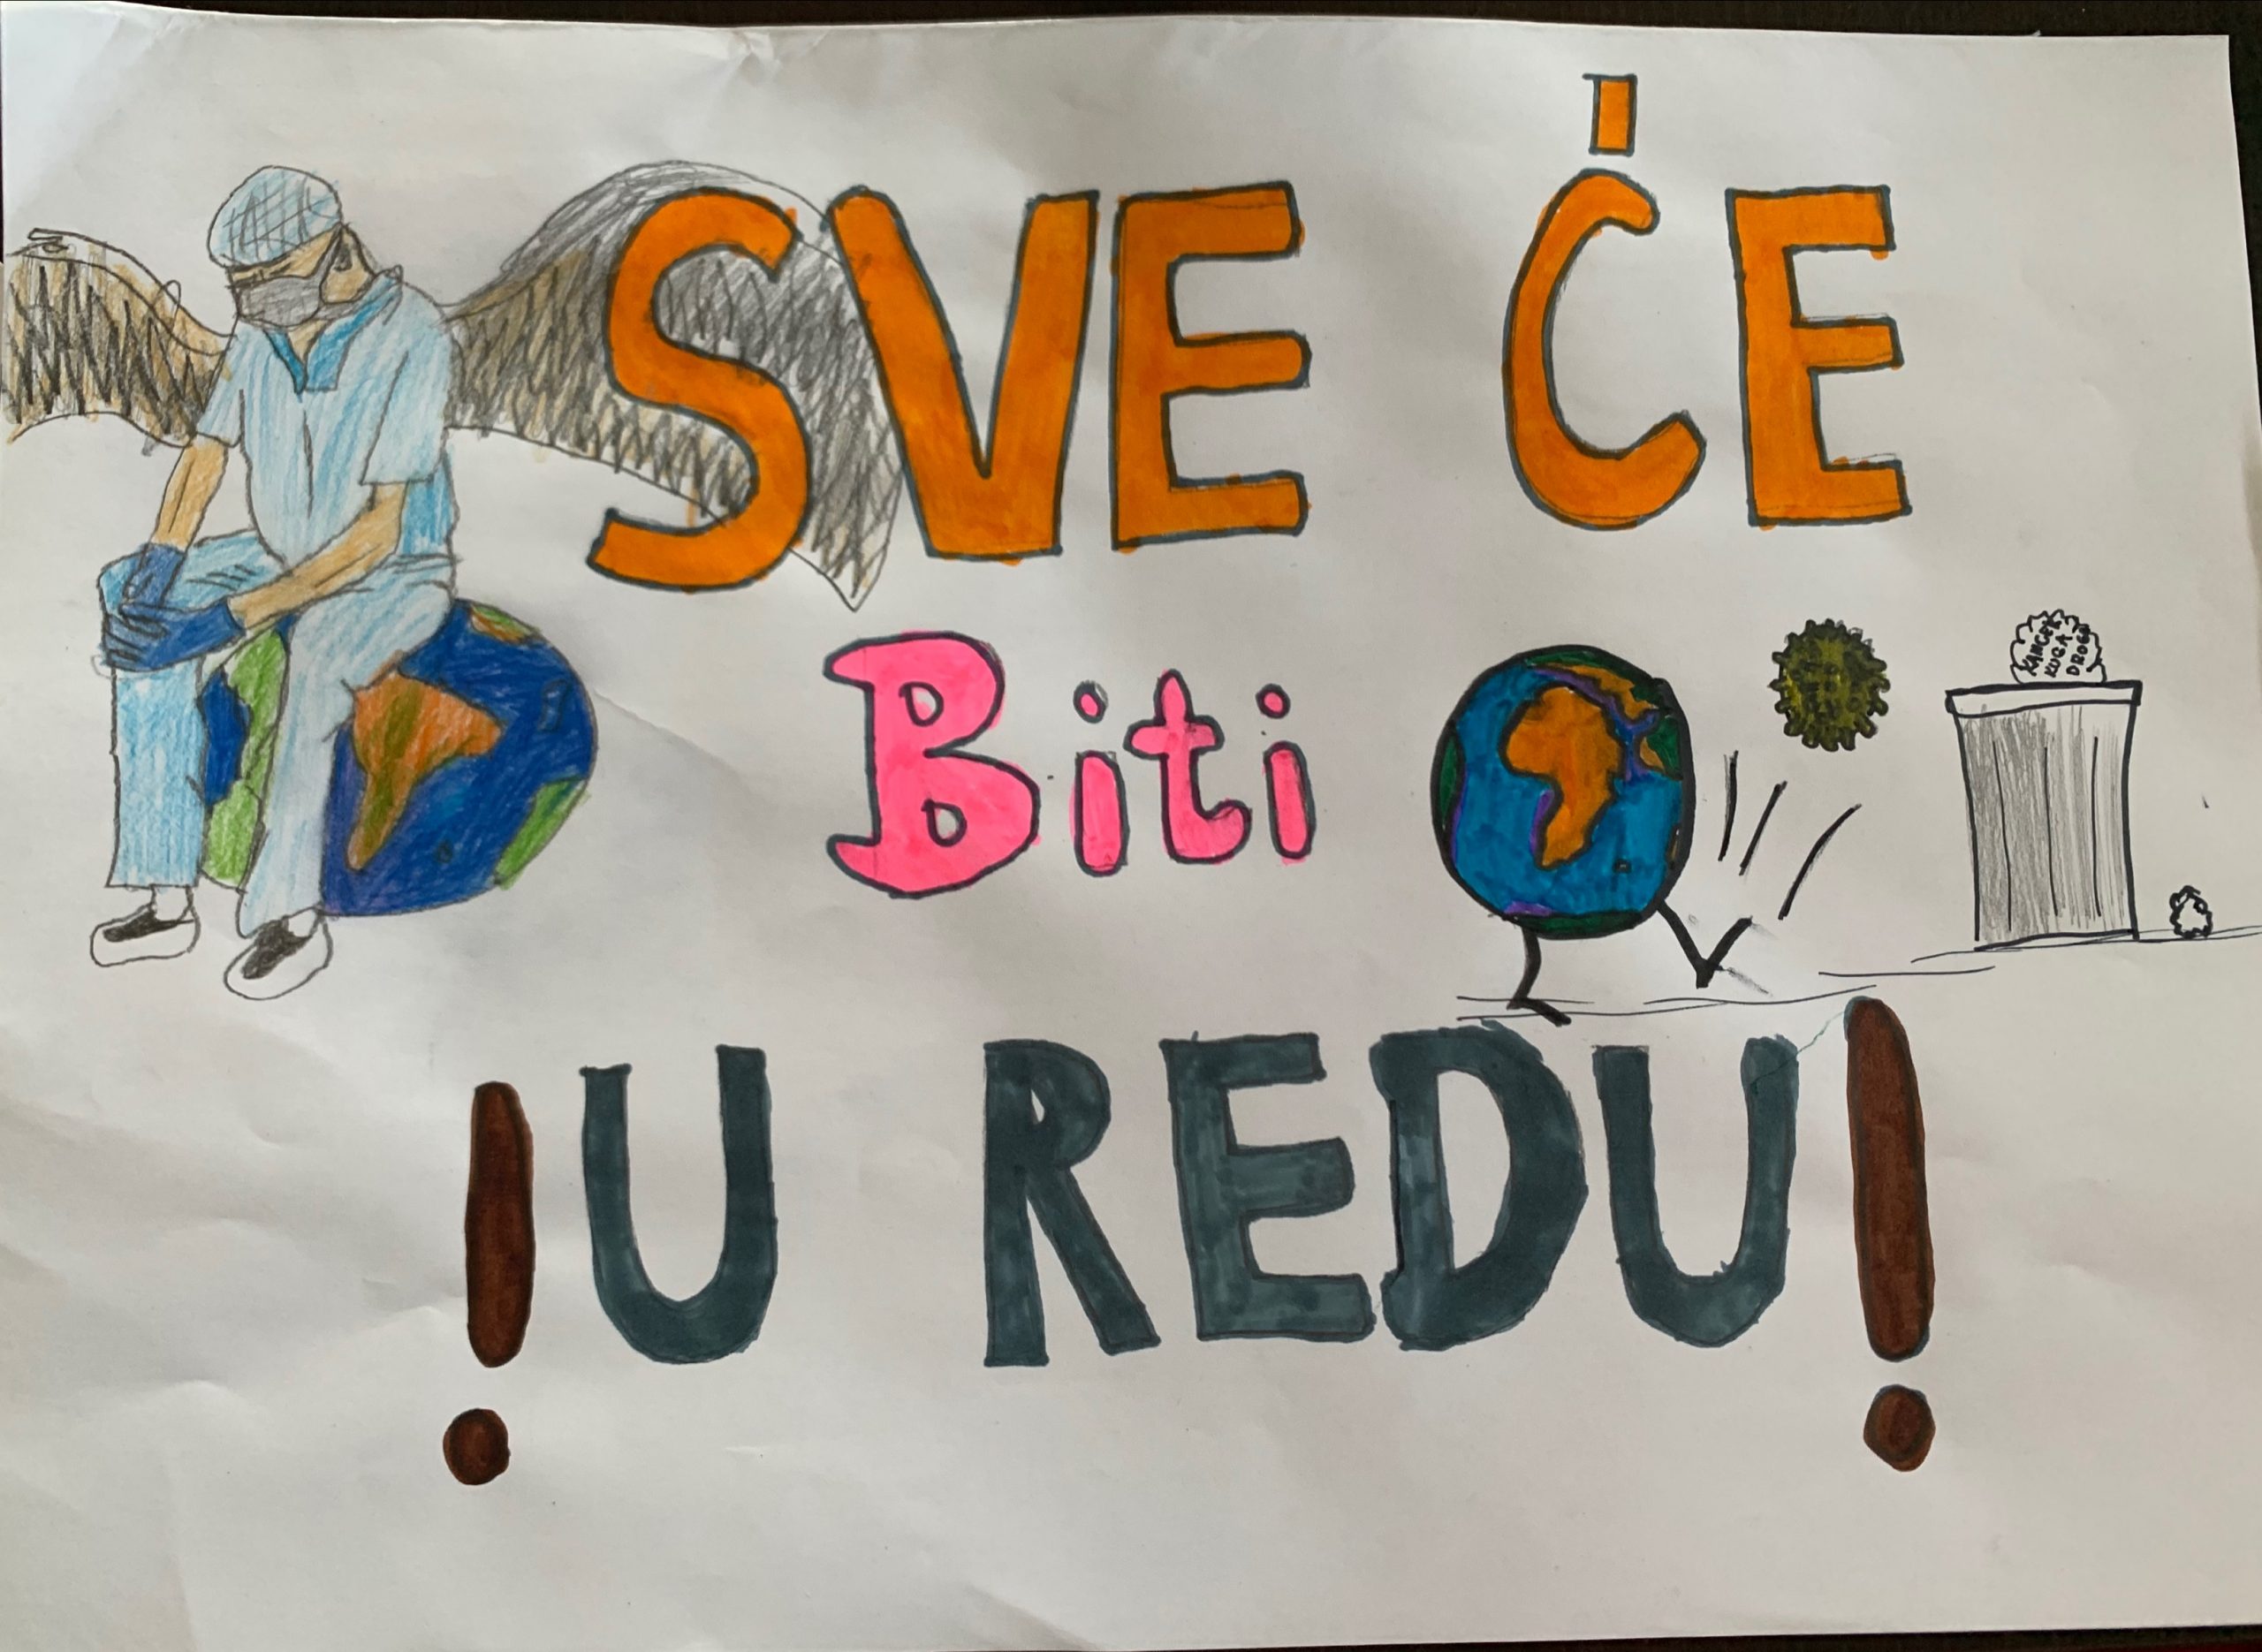 SVE ĆE
Biti
KANCER
KUGA
DROGA
! U REDU!